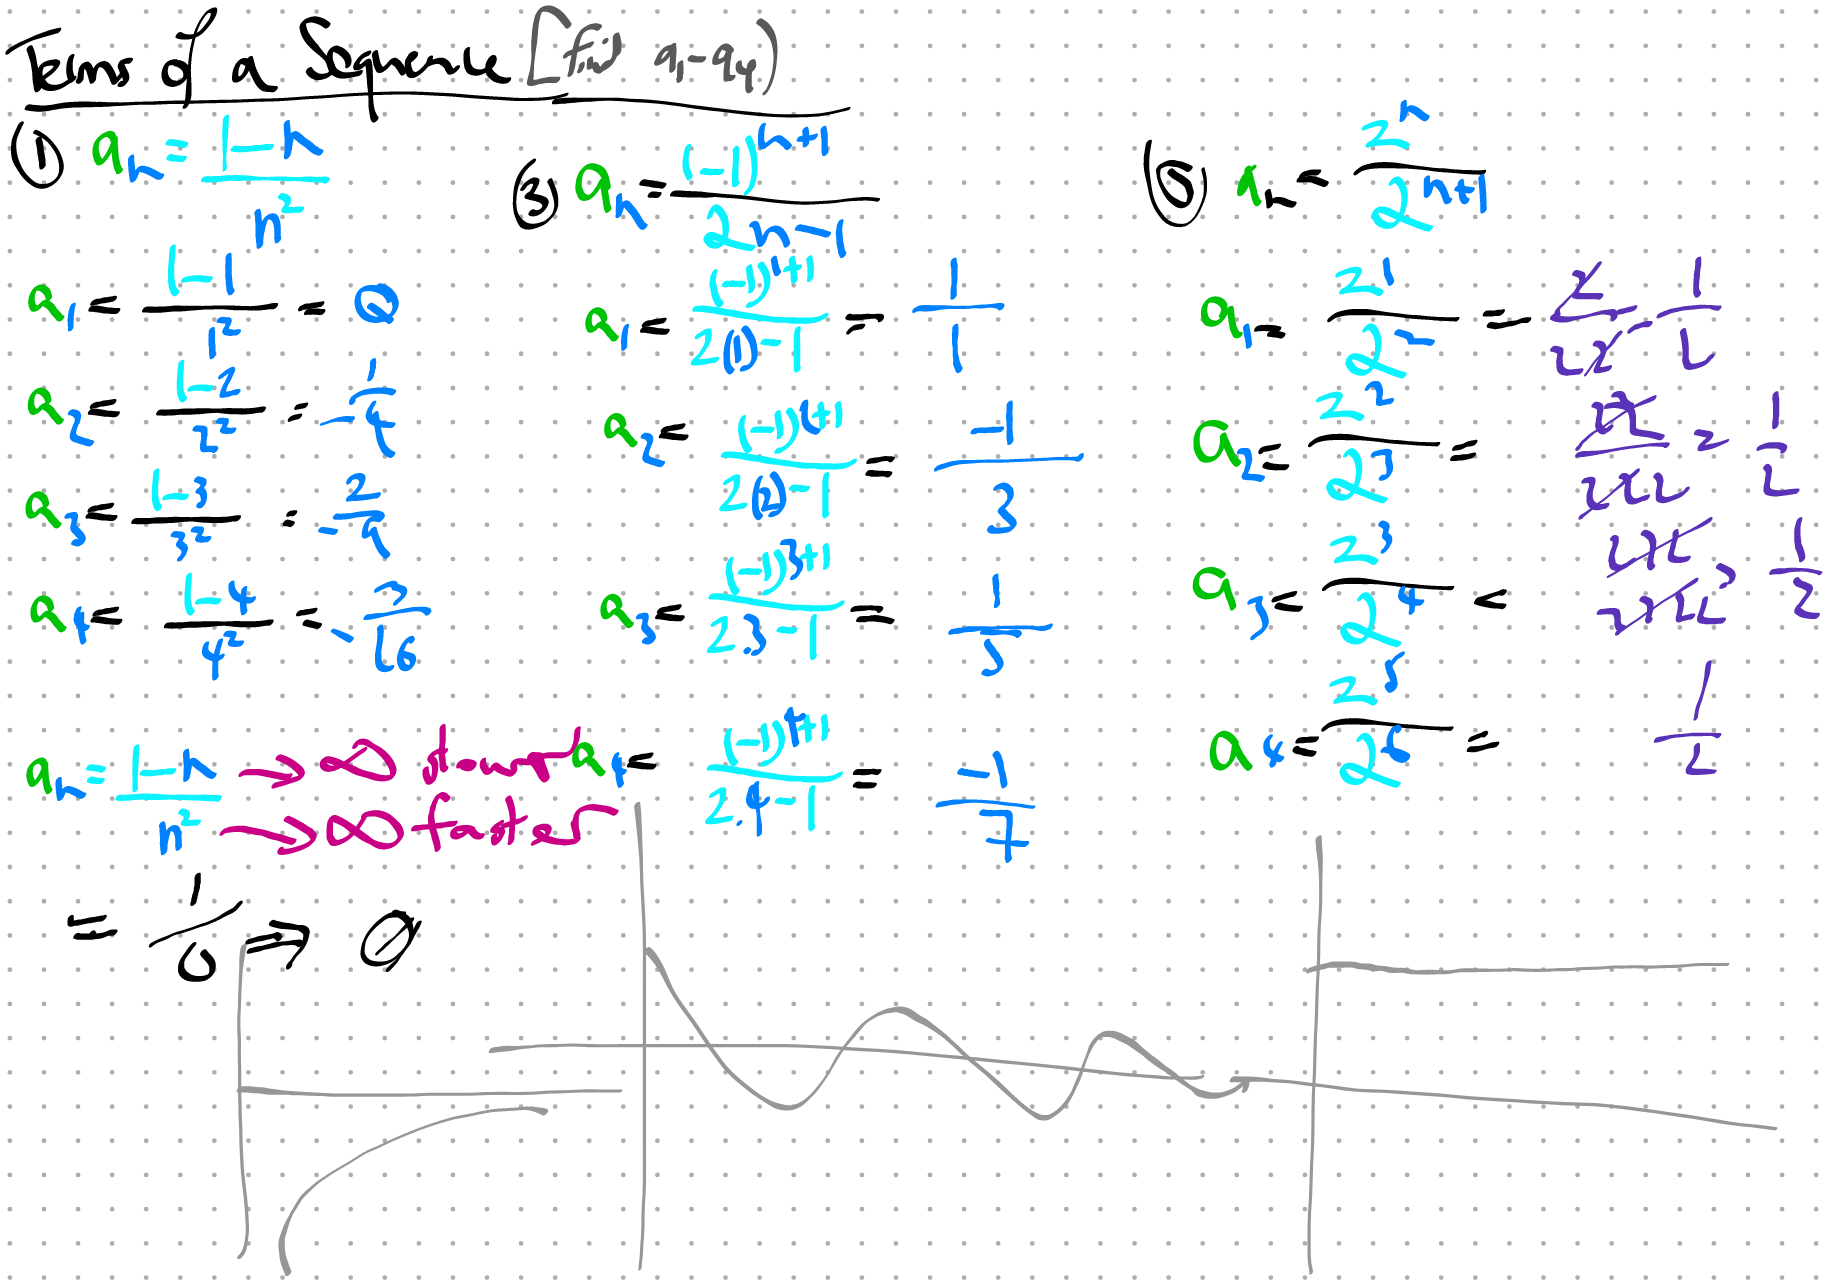 Terms of a Sequence [find a₁-a₄)
① aₙ = (1-n)/n²
a₁ = (1-1)/1² = 0
a₂ = (1-2)/2² = -1/4
a₃ = (1-3)/3² = -2/9
a₄ = (1-4)/4² = -3/16
aₙ = (1-n)/n² → ∞ slower
→ ∞ faster
= 1/0 ⇒ 0
③ aₙ = (-1)ⁿ⁺¹/(2n-1)
a₁ = (-1)¹⁺¹/(2(1)-1) = 1/1
a₂ = (-1)²⁺¹/(2(2)-1) = -1/3
a₃ = (-1)³⁺¹/(2·3-1) = 1/5
a₄ = (-1)⁴⁺¹/(2·4-1) = -1/7
⑤ aₙ = 2ⁿ/2ⁿ⁺¹
a₁ = 2¹/2² = 2/22 = 1/2
a₂ = 2²/2³ = 22/222 = 1/2
a₃ = 2³/2⁴ = 222/2222 = 1/2
a₄ = 2⁵/2⁶ = 1/2